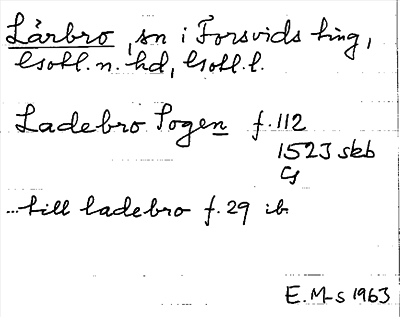 Lärbro, sn i Forsvids ting,
Gotl. n. hd, Gotl. l.
Ladebro Sogen f. 112
1523 skb
G
... till ladebro f. 29 ib.
E. M-s 1963